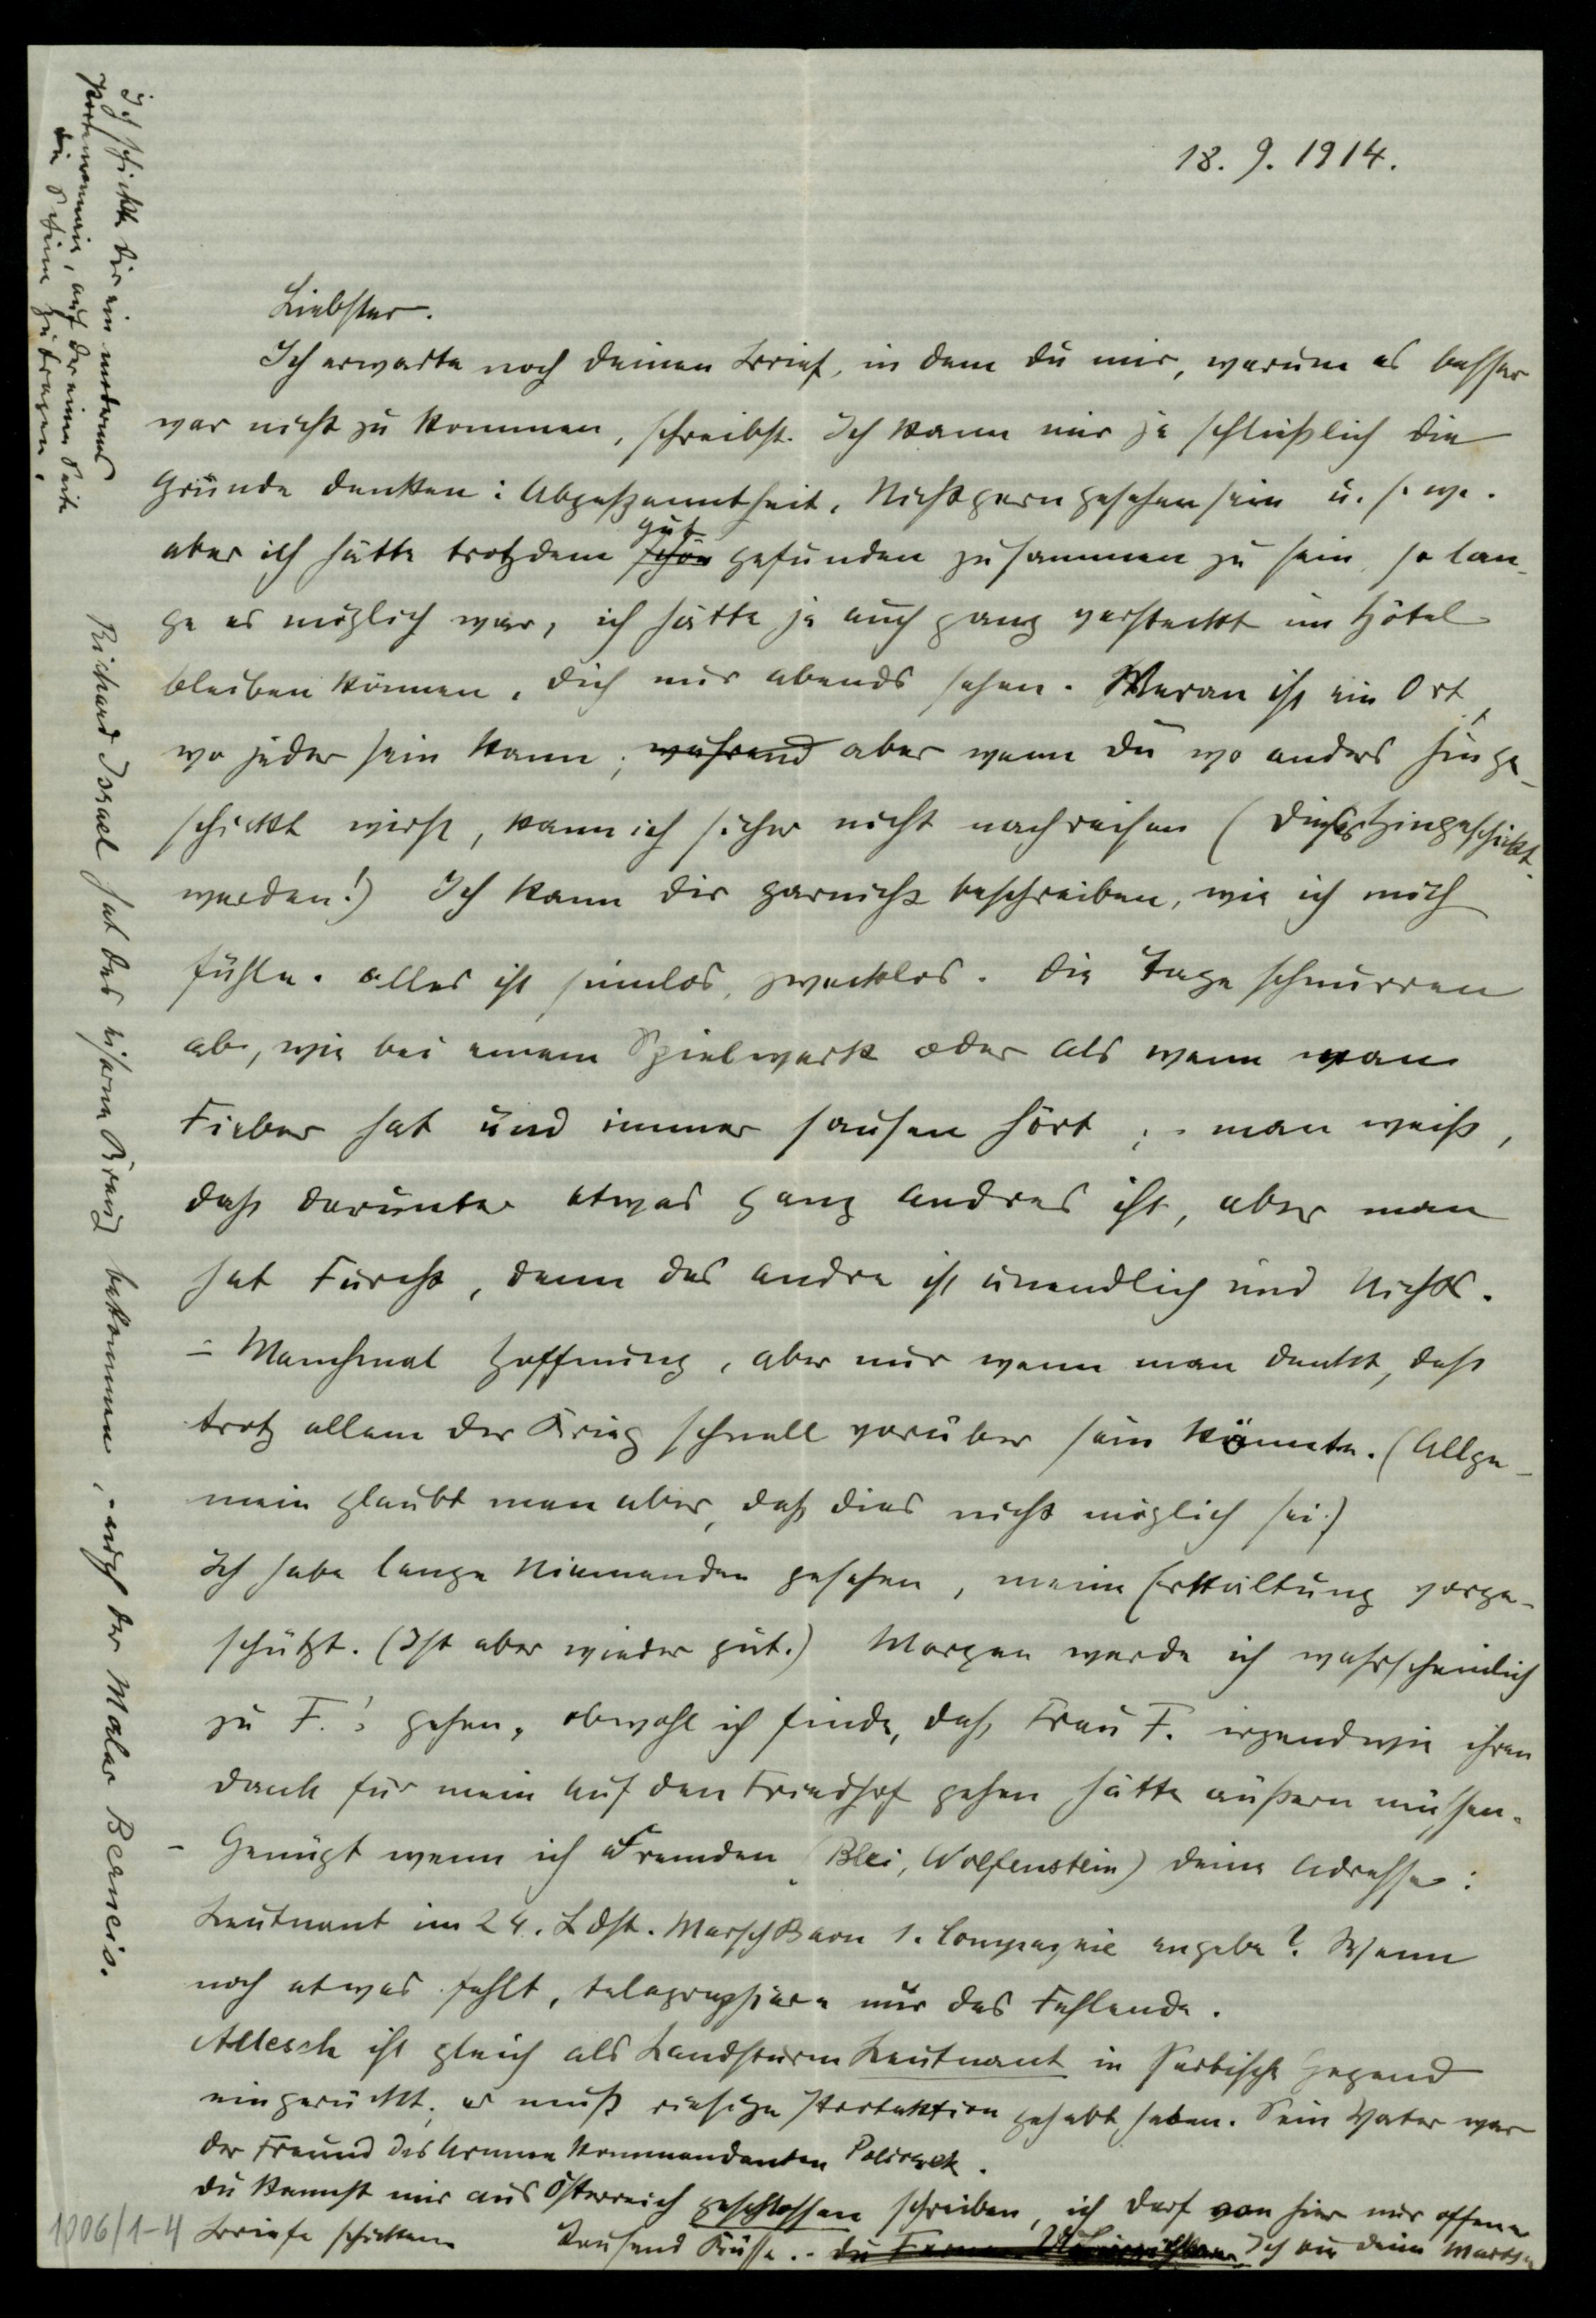 18. 9. 1914.
Liebster.
Ich erwarte noch deinen Brief, in dem du mir, warum es besser
war nicht zu kommen, schreibst. Ich kann mir ja schließlich die
Gründe denken: Abgespanntheit, Nichtgerngesehensein u. s. w.
aber ich hätte trotzdem schön gut gefunden zusammen zu sein, so lan-
ge es möglich war, ich hätte ja auch ganz versteckt im Hôtel
bleiben können, dich nur abends sehen. Meran ist ein Ort,
wo jeder sein kann; während aber wenn du wo anders hinge-
schickt wirst, kann ich sicher nicht nachreisen (dieses Hingeschickt-
werden!) Ich kann dir garnicht beschreiben, wie ich mich
fühle. Alles ist sinnlos, zwecklos. Die Tage schnurren
ab, wie bei einem Spielwerk oder als wenn man
Fieber hat und immer sausen hört; – man weiß,
dass darunter etwas ganz andres ist, aber man
hat Furcht, denn das andre ist unendlich und Nichts.
– Manchmal Hoffnung, aber nur wenn man denkt, dass
trotz allem der Krieg schnell vorüber sein könnte. (Allge-
mein glaubt man aber, dass dies nicht möglich sei.)
Ich habe lange Niemanden gesehen, meine Erkältung vorge-
schützt. (Ist aber wieder gut.) Morgen werde ich wahrscheinlich
zu F.'s gehen, obwohl ich finde, dass Frau F. irgendwie ihren
Dank für mein auf den Friedhof gehen hätte äußern müssen.
– Genügt wenn ich Fremden (Blei, Wolfenstein) deine Adresse:
Leutnant im 24. Ldst. Marsch Baon 1. Compagnie angebe? Wenn
noch etwas fehlt, telegraphiere nur das Fehlende.
Allesch ist gleich als Landsturm Leutnant in Serbische Gegend
eingerückt; er muß riesige Protektion gehabt haben. Sein Vater war
der Freund des Armee Kommandanten
Du kannst mir aus Österreich geschlossen schreiben, ich darf von hier nur offene
Briefe schicken. Tausend Küsse.. du Ich bin deine Martha
Ich schickte dir ein
Portemonnaie, auf der einen Seite
die Scheine zu tragen.
Richard Israel hat das eiserne Kreuz bekommen, – auch der Maler Berneis.
1006/1-4